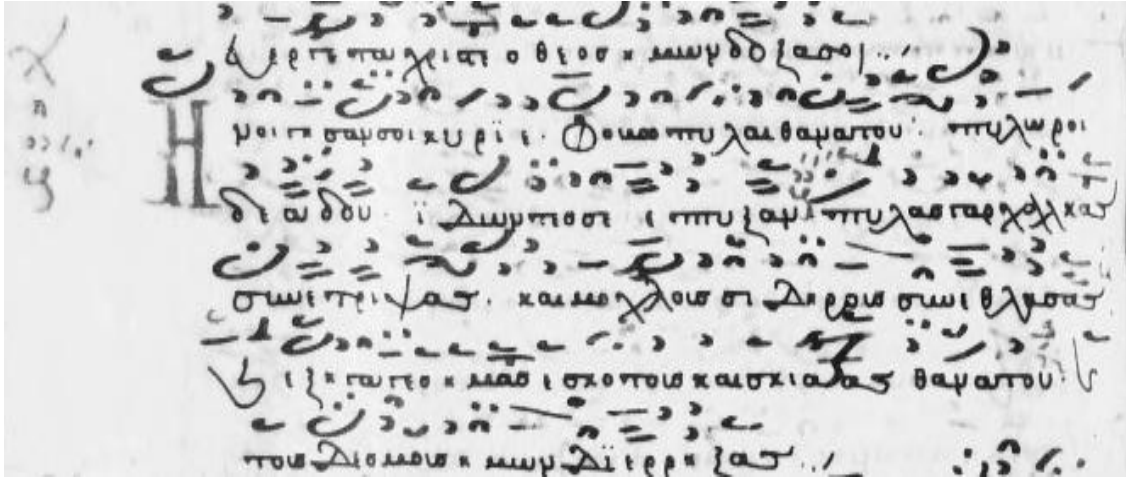 εργετα χριστε ο θεος ημων δοξα σοι
Ηνοιγησαν σοι κυριε · φοβω πυλαι θανατου · πυλωροι
δε αιδου · ϊδωντες σε επτυξαν πυλας γαρ χαλκας
συνετριψας · και μοχλους σιδηρους συνεθλασας
ϗ εξηγαγες ημας εκ σκοτους και σκιας θανατου · ϗ
τους δεσμους ημων διερρηξας